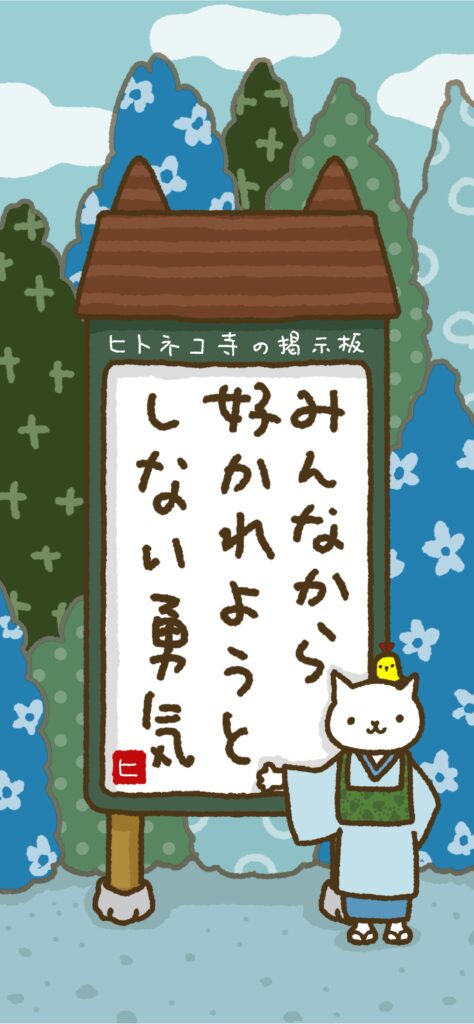 ヒトネコ寺の掲示板
みんなから
好かれようと
しない勇気
ヒ